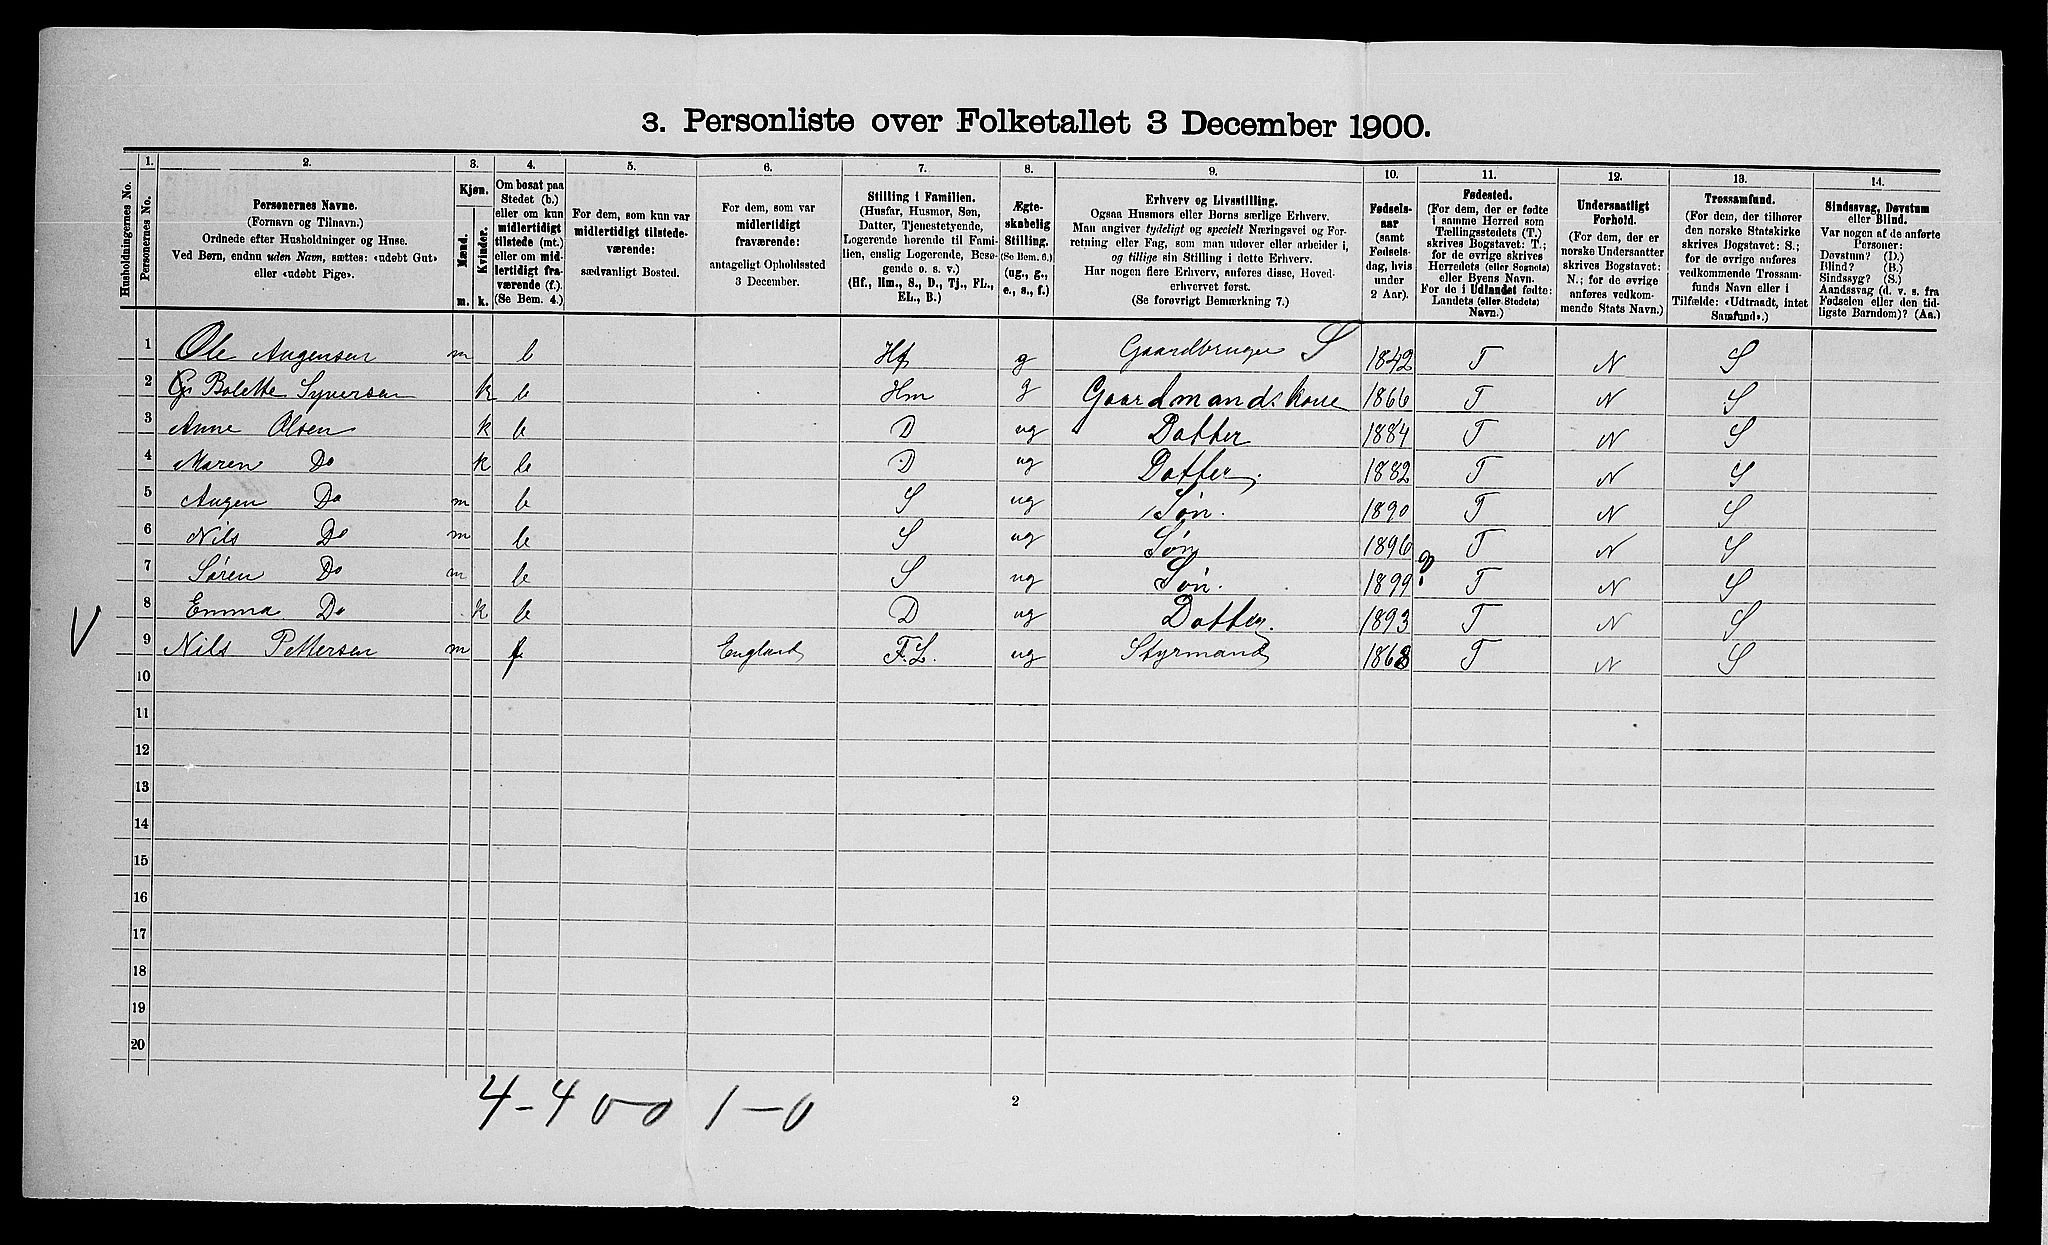 3. Personliste over Folketallet 3 December 1900.
1. 2. 3. 4. 5. 6. 7. 8. 9. 10. 11. 12. 13. 14.
Husholdningernes No.
Personernes No.
Personernes Navne.
(Fornavn og Tilnavn.)
Ordnede efter Husholdninger og Huse.
Ved Børn, endnu uden Navn, sættes: «udøbt Gut»
eller «udøbt Pige».
Kjøn.
Mænd.
Kvinder.
m. k.
Om bosat paa
Stedet (b.)
eller om kun
midlertidigt
tilstede (mt.)
eller om mid-
lertidigt fra-
værende (f.)
(Se Bem. 4.)
For dem, som kun var
midlertidigt tilstede-
værende:
sædvanligt Bosted.
For dem, som var
midlertidigt
fraværende:
antageligt Opholdssted
3 December.
Stilling i Familien.
(Husfar, Husmor, Søn,
Datter, Tjenestetyende,
Logerende hørende til Fami-
lien, enslig Logerende, Besø-
gende o. s. v.)
(Hf., Hm., S., D., Tj., FL.,
EL., B.)
Ægte-
skabelig
Stilling.
(Se Bem. 6.)
(ug., g.,
e., s., f.)
Erhverv og Livsstilling.
Ogsaa Husmors eller Børns særlige Erhverv.
Man angiver tydeligt og specielt Næringsvei og For-
retning eller Fag, som man udøver eller arbeider i,
og tillige sin Stilling i dette Erhverv.
Har nogen flere Erhverv, anføres disse, Hoved-
erhvervet først.
(Se forøvrigt Bemærkning 7.)
Fødsels-
aar
(samt
Fødsels-
dag, hvis
under
2 Aar).
Fødested.
(For dem, der er fødte
i samme Herred som
Tællingsstedets (T.)
skrives Bogstavet: T.;
for de øvrige skrives
Herredets (eller Sognets)
eller Byens Navn.
For de i Udlandet fødte:
Landets (eller Stedets)
Navn.)
Undersaatligt
Forhold.
(For dem, der er
norske Undersaatter
skrives Bogstavet:
N.; for de øvrige
anføres vedkom-
mende Stats Navn.)
Trossamfund.
(For dem, der tilhører
den norske Statskirke
skrives Bogstavet: S.;
for de øvrige anføres
vedkommende Trossam-
funds Navn eller i
Tilfælde: «Udtraadt, intet
Samfund».)
Sindssvag, Døvstum
eller Blind.
Var nogen af de anførte
Personer:
Døvstum? (D.)
Blind? (B.)
Sindssyg? (S.)
Aandssvag (d. v. s. fra
Fødselen eller den tid-
ligste Barndom)? (Aa.)
1 Ole Augensen m b Hf g Gaardbruger S 1842 T N S
2 Bolette Syversen k b Hm g Gaardmandskone 1866 T N S
3 Anne Olsen k b D ug Datter 1884 T N S
4 Maren Do k b D ug Datter. 1882 T N S
5 Augen Do m b S ug Søn. 1890 T N S
6 Nils Do m b S ug Søn 1896 T N S
7 Søren Do m b S ug Søn. 1899 T N S
8 Emma Do k b D ug Datter. 1893 T N S
V 9 Nils Pettersen m f England F.L. ug Styrmand 1868 T N S
10
11
12
13
14
15
16
17
18
19
20
4-4 0-0 1-0
2